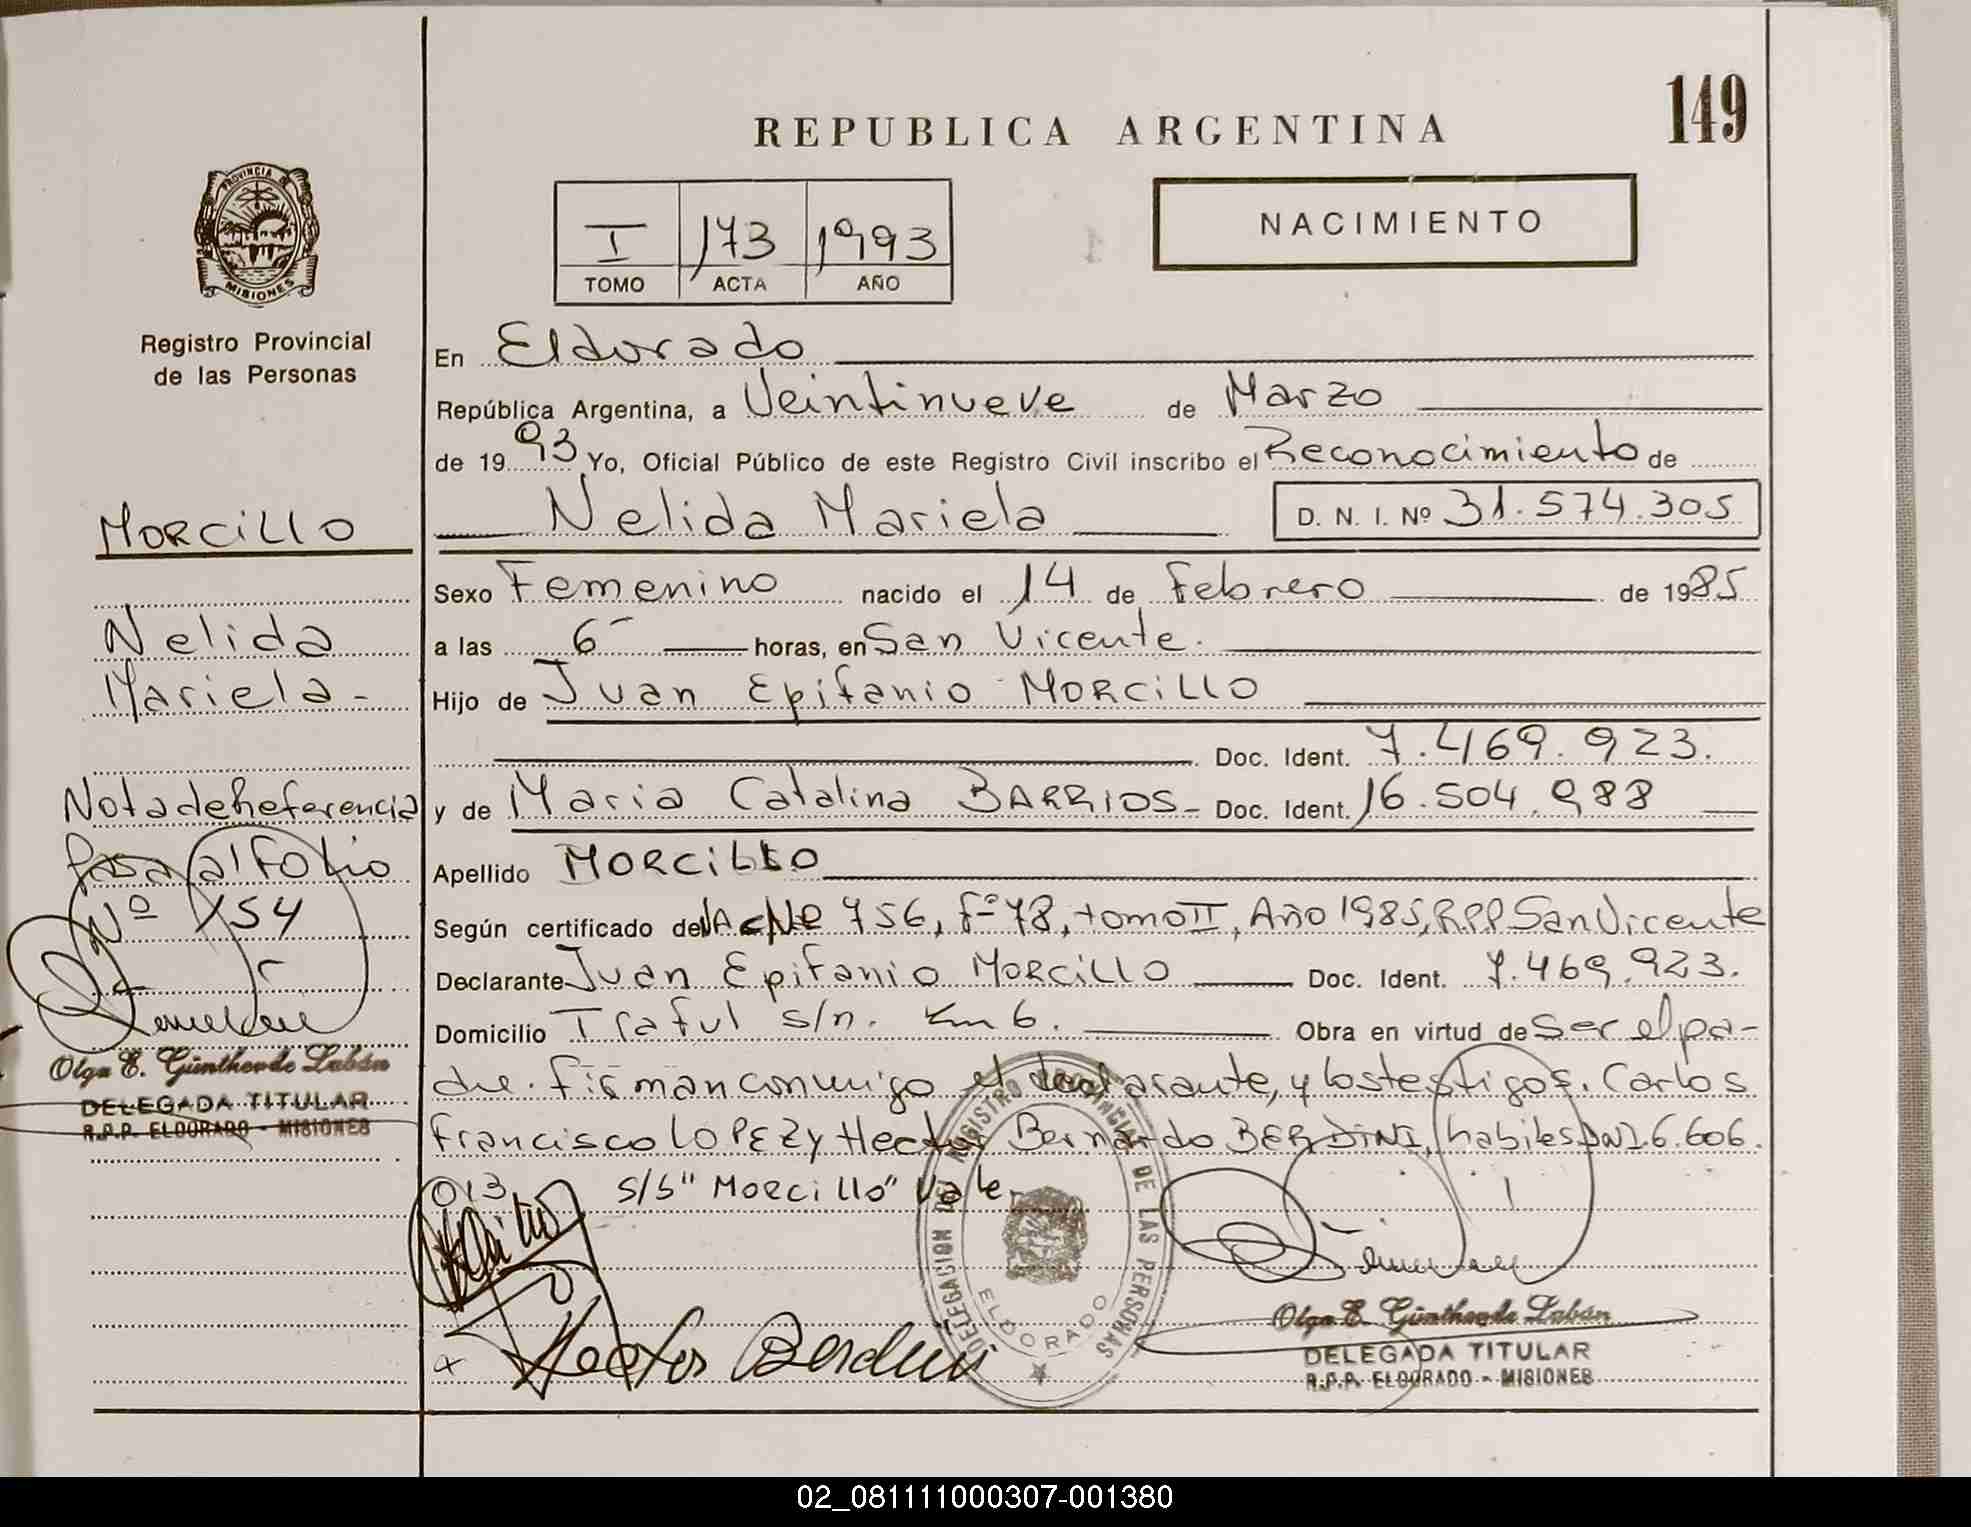 149
REPUBLICA ARGENTINA
PROVINCIA DE
MISIONES
Registro Provincial
de las Personas
I 173 1993
TOMO ACTA AÑO
NACIMIENTO
En Eldorado
República Argentina, a Veintinueve de Marzo
de 1993 Yo, Oficial Público de este Registro Civil inscribo el Reconocimiento de
Nelida Mariela D. N. I. Nº 31.574.305
MORCILLO
Sexo Femenino nacido el 14 de Febrero de 1985
Nelida
a las 6 horas, en San Vicente.
Mariela-
Hijo de Juan Epifanio MORCILLO
Doc. Ident. 7.469.923.
Nota de Referencia
y de Maria Catalina BARRIOS- Doc. Ident. 16.504.988
Pasa al Folio
Apellido MORCILLO
Nº 154
Según certificado de Nº 756, Fº 78, tomo II, Año 1985, RPP San Vicente
Declarante Juan Epifanio MORCILLO Doc. Ident. 7.469.923.
Domicilio Traful s/n. Km 6. Obra en virtud de Ser el pa-
dre. firman conmigo el declarante, y los testigos. Carlos
Francisco LOPEZ y Hector Bernardo BERDINI, habiles DNI.6.606.
013 s/b "Morcillo" Vale.
Olga E. Günther de Labán
DELEGADA TITULAR
R.P.P. ELDORADO - MISIONES
DELEGACION DEL REGISTRO PROVINCIAL DE LAS PERSONAS
ELDORADO
Hector Berdini
Olga E. Günther de Labán
DELEGADA TITULAR
R.P.P. ELDORADO - MISIONES
02_081111000307-001380